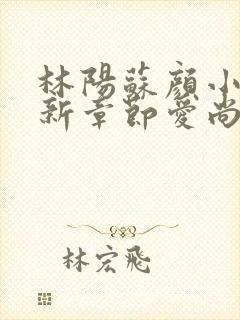 林陽蘇顔小
新章節愛尚
林宏飛